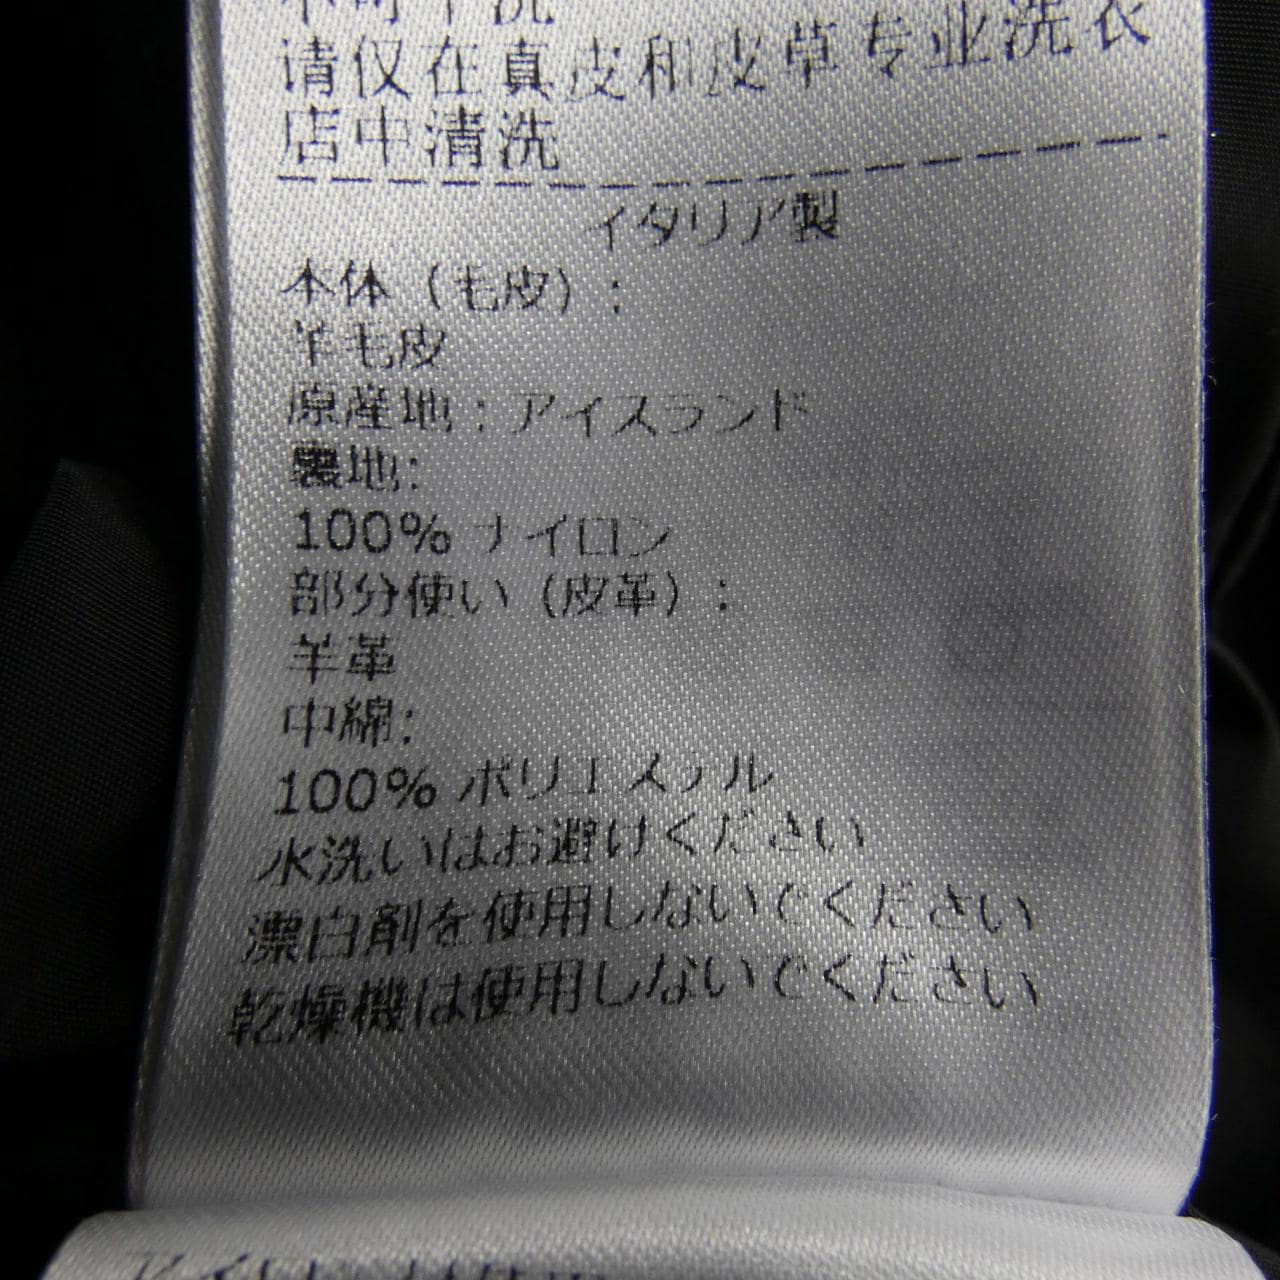 不可干洗
请仅在真皮和皮草专业洗衣
店中清洗
イタリア製
本体（毛皮）:
羊毛皮
原産地：アイスランド
裏地:
100% ナイロン
部分使い（皮革）:
羊革
中綿:
100% ポリエステル
水洗いはお避けください
漂白剤を使用しないでください
乾燥機は使用しないでください